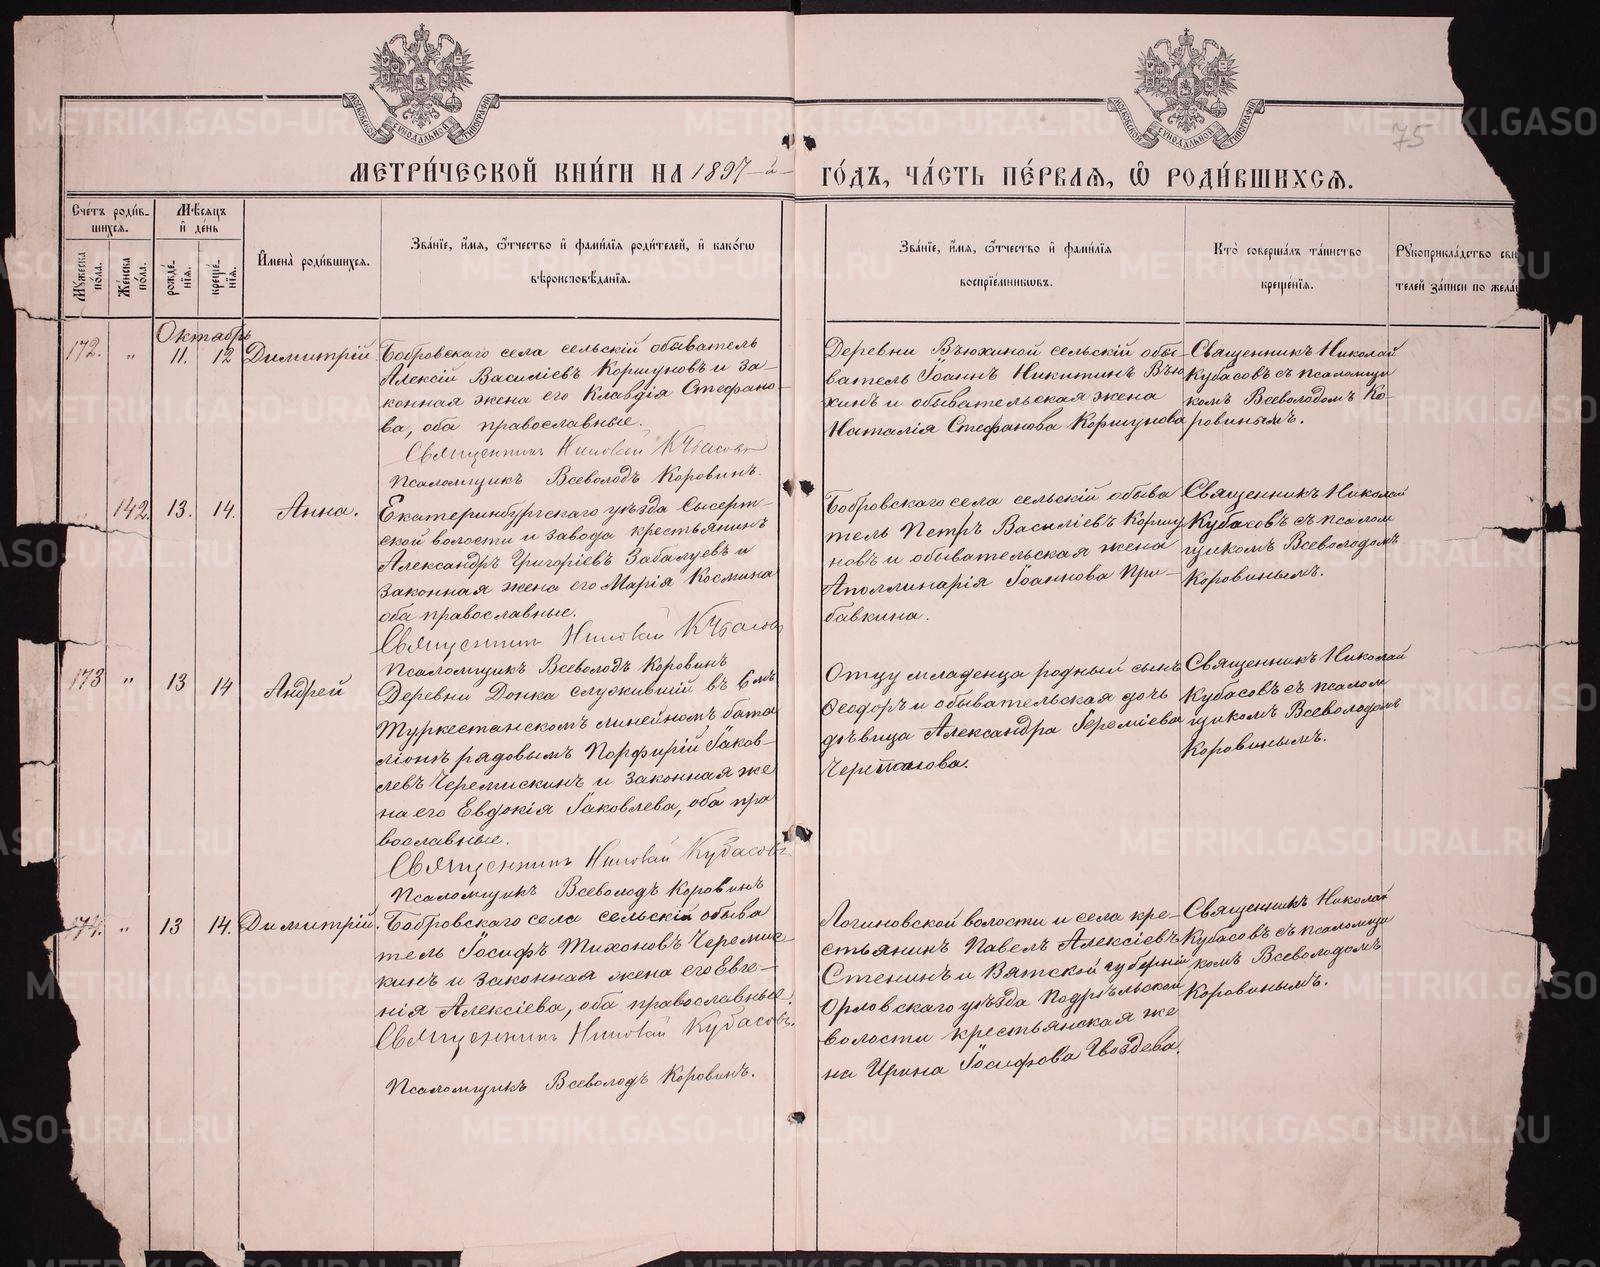 МОСКОВСКОЙ СѴНОДАЛЬНОЙ ТИПОГРАФІИ
МОСКОВСКОЙ СѴНОДАЛЬНОЙ ТИПОГРАФІИ
75
МЕТРИ́ЧЕСКОЙ КНИ́ГИ НА 1897-й ГО́ДЪ, ЧА́СТЬ ПЕ́РВАѦ, Ѡ РОДИ́ВШИХСѦ.
Сче́тъ роди́в-
шихсѧ.
Мѣсѧцъ
и де́нь
Мꙋжеска по́ла.
Же́нска по́ла.
рожде́-нїѧ.
креще́-нїѧ.
Имена̀ роди́вшихсѧ.
Зва́нїе, и́мѧ, ѻ҆́тчество и҆ фами́лїѧ роди́телей, и҆ како́гѡ
вѣроисповѣ́данїѧ.
Зва́нїе, и́мѧ, ѻ҆́тчество и҆ фами́лїѧ
воспрїе́мникѡвъ.
Кто̀ соверша́лъ та́инство
креще́нїѧ.
Рꙋкоприкла́дство сви
телей за́писи по жела
Октябрь
172. " 11. 12 Димитрій
Бобровскаго села сельскій обыватель
Алексій Василіевъ Коршуновъ и за-
конная жена его Клавдія Стефано-
ва, оба православные.
Священникъ Николай Кубасовъ
Псаломщикъ Всеволодъ Коровинъ.
Деревни Вьюхиной сельскій обы-
ватель Іоаннъ Никитинъ Вью
хинъ и обывательская жена
Наталія Стефанова Коршунова
Священникъ Николай
Кубасовъ съ псаломщи
комъ Всеволодомъ Ко-
ровинымъ.
142. 13. 14. Анна.
Екатеринбургскаго уѣзда Сысерт-
ской волости и завода крестьянинъ
Александръ Григоріевъ Забалуевъ и
законная жена его Марія Космина
оба православные.
Священникъ Николай Кубасовъ
Псаломщикъ Всеволодъ Коровинъ
Бобровскаго села сельскій обыва
тель Петръ Василіевъ Коршу
новъ и обывательская жена
Аполлинарія Іоаннова При-
бавкина.
Священникъ Николай
Кубасовъ съ псалом
щикомъ Всеволодомъ
Коровинымъ.
173 " 13 14 Андрей
Деревни Донка служившій въ 6мъ
Туркестанскомъ линейномъ бата
ліонѣ рядовымъ Порфирій Іаков-
левъ Черемискинъ и законная же
на его Евдокія Іаковлева, оба пра
вославные.
Священникъ Николай Кубасовъ
Псаломщикъ Всеволодъ Коровинъ
Отцу младенца родный сынъ
Ѳеодоръ и обывательская дочь
дѣвица Александра Іереміева
Священникъ Николай
Кубасовъ съ псалом
щикомъ Всеволодомъ
Коровинымъ.
174. " 13 14. Димитрій.
Бобровскаго села сельскій обыва
тель Іосифъ Тихоновъ Черемис-
кинъ и законная жена его Евге-
нія Алексіева, оба православные.
Священникъ Николай Кубасовъ.
Псаломщикъ Всеволодъ Коровинъ.
Логиновской волости и села кре-
стьянинъ Павелъ Алексіевъ
Стенинъ и Вятской губерніи
Орловскаго уѣзда Подрѣльской
волости крестьянская же
на Ирина Іосифова Гвоздева.
Священникъ Николай
Кубасовъ съ псаломщи
комъ Всеволодомъ
Коровинымъ.
METRIKI.GASO-URAL.RU